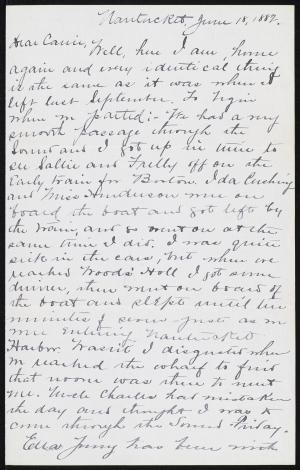 Nantucket, June 18, 1882.
Dear Carrie,
Well, here I am home
again and every identical thing
is the same as it was when I
left last September. To begin
when we parted:- We had a very
smooth passage through the
Sound and I got up in time to
see Sallie and Fally off on the
Early train for Boston. Ida Cushing
and Miss Anderson were on
board the boat and got left by
the train, and so went on at the
same time I did. I was quite
sick in the cars, but when we
reached Wood's Holl I got some
dinner, then went on board of
the boat and slept until ten
minutes of seven just as we
were Entering Nantucket
Harbor. Wasn't I disgusted when
we reached the wharf to find
that no one was there to meet
me. Uncle Charles had mistaken
the day and thought I was to
come through the Sound Friday.
has been with